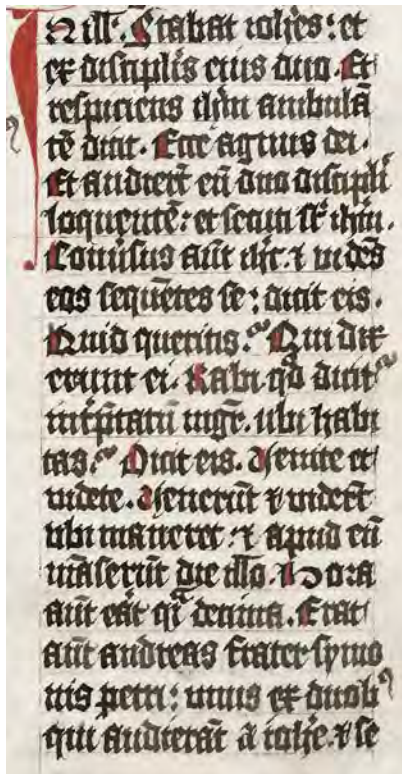 In ill'. Stabat ioh̄es: et
ex discipl̄is eius duo. Et
respiciens ih̄m ambulā
tē dicit. Ecce agnus dei.
Et audierūt eū duo discipli
loquentē: et secuti st̄ ih̄m.
Conuersus aūt ih̄c. ⁊ uidēs
eos sequētes se: dicit eis.
Quid queritis. Qui dix
erunt ei. Rabi. qd̄ dicit᷑
int̄p̄tatū mgr̄. ubi habi
tas. Dicit eis. Uenite et
uidete. Uenerūt ⁊ uider̄t
ubi maneret: ⁊ apud eū
māserūt die illo. Hora
aūt erāt q̄i decima. Erat
aūt andreas frater symo
nis petri: unus ex duob᷒
qui audierāt a ioh̄e. ⁊ se